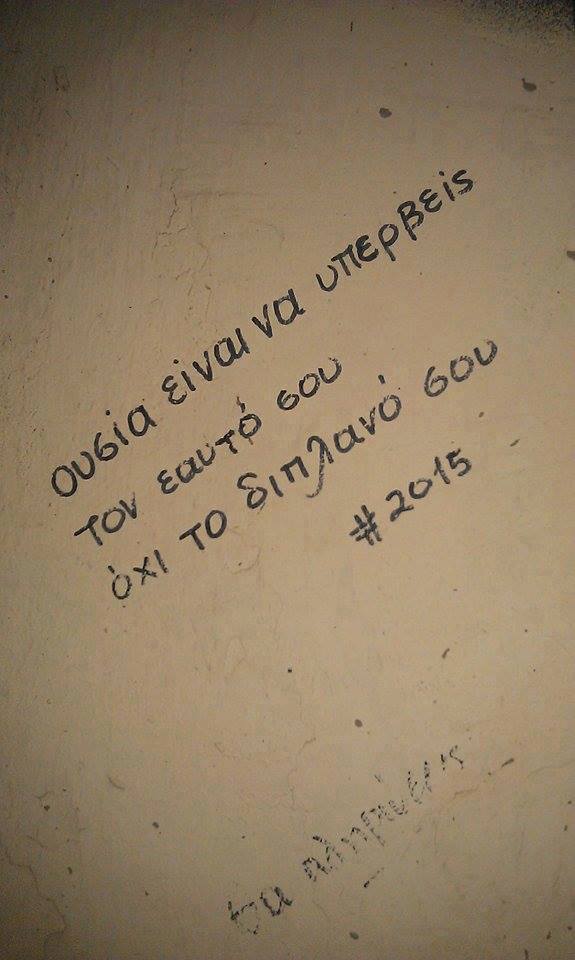 ουσία είναι να υπερβείς
τον εαυτό σου
όχι το διπλανό σου
#2015
θα πληρώνεις